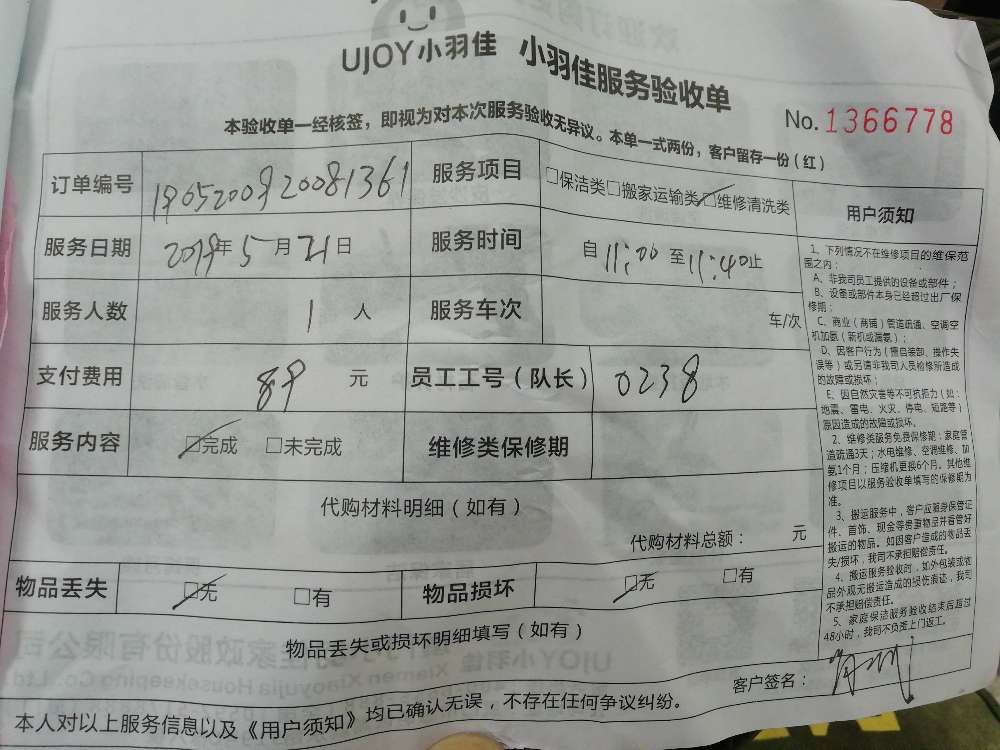 UJOY小羽佳 小羽佳服务验收单
No. 1366778
本验收单一经核签，即视为对本次服务验收无异议。本单一式两份，客户留存一份（红）
订单编号 1905200920081361 服务项目 □保洁类□搬家运输类□维修清洗类
服务日期 2019年5月21日 服务时间 自11:00至11:40止
服务人数 1人 服务车次 车/次
支付费用 89元 员工工号（队长） 0238
服务内容 □完成 □未完成 维修类保修期
代购材料明细（如有）
代购材料总额： 元
物品丢失 □无 □有 物品损坏 □无 □有
物品丢失或损坏明细填写（如有）
用户须知
1、下列情况不在维修项目的维保范
围之内：
A、非我司员工提供的设备或部件；
B、设备或部件本身已经超过出厂保
修期；
C、商业（商铺）管道疏通、空调空
机加氨（新机或漏氨）；
D、因客户行为（擅自装卸、操作失
误等）或另请非我司人员检修所造成
的故障或损坏；
E、因自然灾害等不可抗拒力（如：
地震、雷电、火灾、停电、短路等）
原因造成的故障或损坏。
2、维修类服务免费保修期：家庭管
道疏通3天；水电维修、空调维修、加
氨1个月；压缩机更换6个月。其他维
修项目以服务验收单填写的保修期为
准。
3、搬运服务中，客户应随身保管证
件、首饰、现金等贵重物品并看管好
搬运的物品。如因客户造成的物品丢
失/损坏，我司不承担赔偿责任。
4、搬运服务验收时，如外包装或物
品外观无搬运造成的损伤痕迹，我司
不承担赔偿责任。
5、家庭保洁服务验收结束后超过
48小时，我司不负责上门返工。
客户签名：
本人对以上服务信息以及《用户须知》均已确认无误，不存在任何争议纠纷。